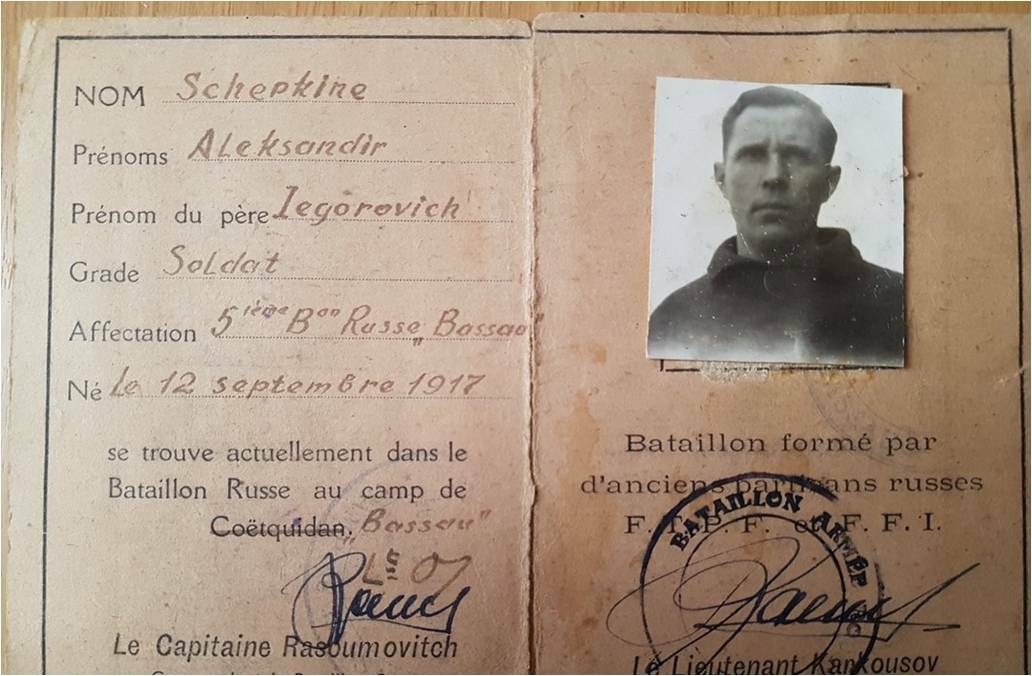 NOM Schepkine
Prénoms Aleksandir
Prénom du père Iegorovich
Grade Soldat
Affectation 5ième Bon Russe "Bassau"
Né le 12 septembre 1917
se trouve actuellement dans le
Bataillon Russe au camp de
Coëtquidan, "Bassau"
Le Capitaine Rasoumovitch
Bataillon formé par
d'anciens partisans russes
F. T. P. F. et F. F. I.
BATAILLON ARMÉE
Le Lieutenant Kankousov